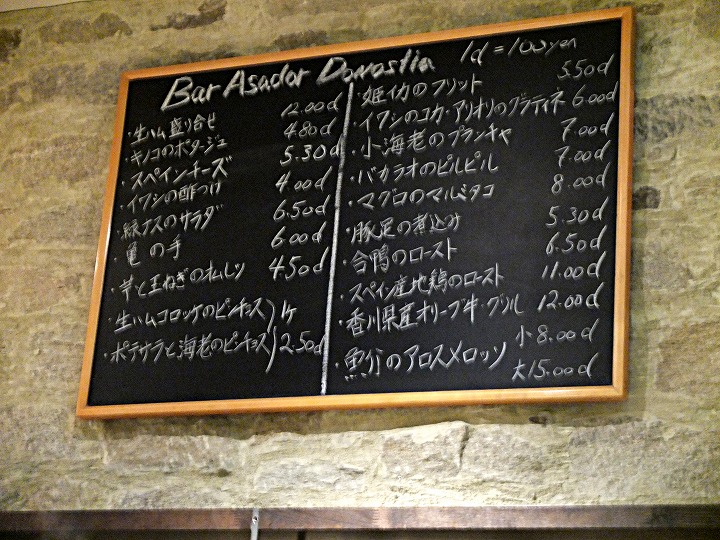 Bar Asador Donostia 1d = 100yen
・生ハム盛り合せ 12.00d
・キノコのポタージュ 4.80d
・スペインチーズ 5.30d
・イワシの酢づけ 4.00d
・緑ナスのサラダ 6.50d
・亀の手 6.00d
・芋と玉ねぎのオムレツ 4.50d
・生ハムコロッケのピンチョス 1ケ
・ポテサラと海老のピンチョス 2.50d
・姫イカのフリット 5.50d
・イワシのコカ・アリオリのグラティネ 6.00d
・小海老のプランチャ 7.00d
・バカラオのピルピル 7.00d
・マグロのマルミタコ 8.00d
・豚足の煮込み 5.30d
・合鴨のロースト 6.50d
・スペイン産地鶏のロースト 11.00d
・香川県産オリーブ牛・グリル 12.00d
・魚介のアロスメロッソ 小 8.00d
大 15.00d